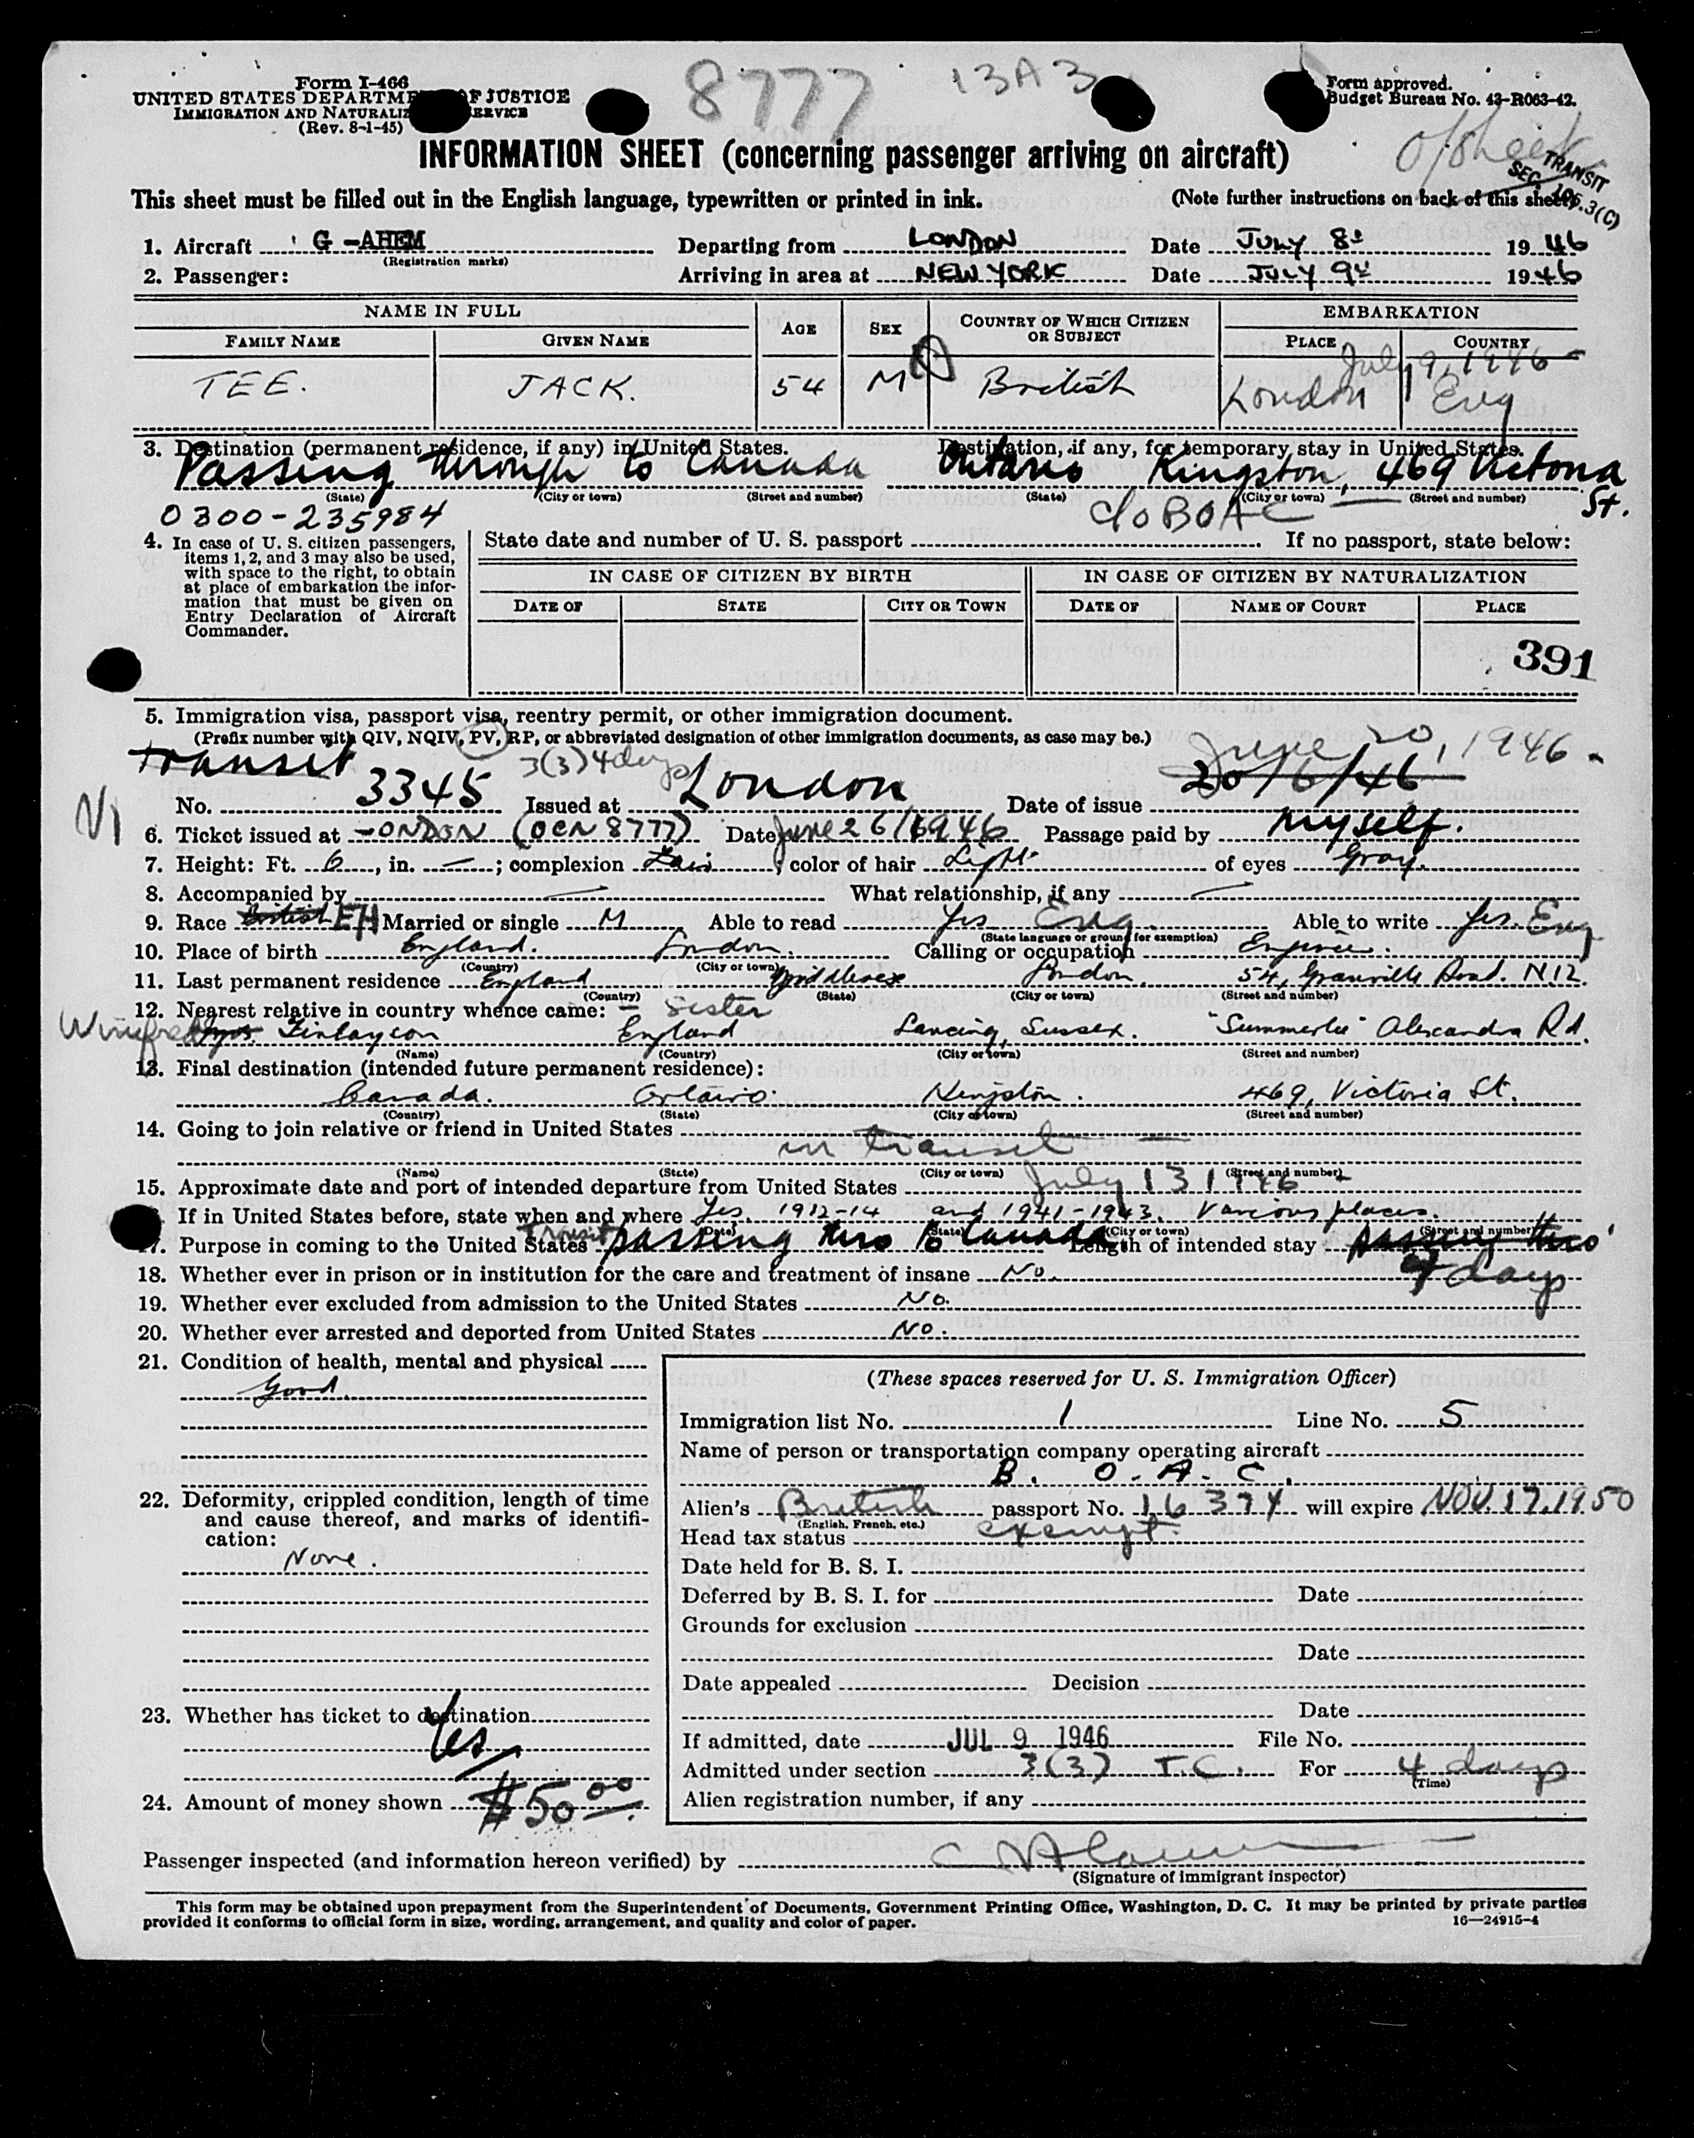 Form I-466
UNITED STATES DEPARTMENT OF JUSTICE
IMMIGRATION AND NATURALIZ SERVICE
(Rev. 8-1-45)
8777
13A3
Form approved.
Budget Bureau No. 43-R063-42.
TRANSIT
SEC. 106.3(C)
INFORMATION SHEET (concerning passenger arriving on aircraft)
This sheet must be filled out in the English language, typewritten or printed in ink. (Note further instructions on back of this sheet)
1. Aircraft G-AHEM Departing from LONDON Date JULY 8th 1946
(Registration marks)
2. Passenger: Arriving in area at NEW YORK Date JULY 9th 1946
NAME IN FULL AGE SEX COUNTRY OF WHICH CITIZEN OR SUBJECT EMBARKATION
FAMILY NAME GIVEN NAME PLACE COUNTRY
July 9, 1946
TEE. JACK. 54 M British London Eng
3. Destination (permanent residence, if any) in United States. Destination, if any, for temporary stay in United States.
Passing through to Canada Ontario Kingston, 469 Victoria St.
(State) (City or town) (Street and number) (State) (City or town) (Street and number)
0300-235984 c/o BOAC
4. In case of U. S. citizen passengers, items 1, 2, and 3 may also be used, with space to the right, to obtain at place of embarkation the information that must be given on Entry Declaration of Aircraft Commander.
State date and number of U. S. passport If no passport, state below:
IN CASE OF CITIZEN BY BIRTH IN CASE OF CITIZEN BY NATURALIZATION
DATE OF STATE CITY OR TOWN DATE OF NAME OF COURT PLACE
391
5. Immigration visa, passport visa, reentry permit, or other immigration document.
(Prefix number with QIV, NQIV, PV, RP, or abbreviated designation of other immigration documents, as case may be.)
Transit 3(3) 4 days June 20, 1946
No. 3345 Issued at London Date of issue 20/6/46
6. Ticket issued at LONDON (OCN 8777) Date June 26/1946 Passage paid by myself.
7. Height: Ft. 6, in. —; complexion Fair, color of hair Light of eyes Gray.
8. Accompanied by — What relationship, if any —
9. Race British EH Married or single M Able to read Yes Eng. Able to write Yes. Eng
(State language or ground for exemption)
10. Place of birth England. London. Calling or occupation Engineer.
(Country) (City or town)
11. Last permanent residence England Middlesex London. 54, Granville Road. N.12.
(Country) (State) (City or town) (Street and number)
12. Nearest relative in country whence came: — Sister
Winifred Mrs. Finlayson England Lancing, Sussex. "Summerlie" Alexandra Rd.
(Name) (Country) (City or town) (Street and number)
13. Final destination (intended future permanent residence):
Canada. Ontario. Kingston. 469, Victoria St.
(Country) (State) (City or town) (Street and number)
14. Going to join relative or friend in United States
in transit —
(Name) (State) (City or town) (Street and number)
15. Approximate date and port of intended departure from United States July 13 1946
If in United States before, state when and where Yes. 1912-14 and 1941-1943. Various places.
(Date) (State) (City or town) (Street and number)
17. Purpose in coming to the United States Transit passing thro to Canada. Length of intended stay passing thro'
4 days
18. Whether ever in prison or in institution for the care and treatment of insane No.
19. Whether ever excluded from admission to the United States No.
20. Whether ever arrested and deported from United States No.
21. Condition of health, mental and physical
Good.
22. Deformity, crippled condition, length of time and cause thereof, and marks of identification:
None.
23. Whether has ticket to destination
Yes
24. Amount of money shown $50.00
(These spaces reserved for U. S. Immigration Officer)
Immigration list No. 1 Line No. 5
Name of person or transportation company operating aircraft
B. O. A. C.
Alien's British passport No. 16374 will expire NOV. 17, 1950
(English, French, etc.)
Head tax status exempt
Date held for B. S. I.
Deferred by B. S. I. for Date
Grounds for exclusion
Date
Date appealed Decision
Date
If admitted, date JUL 9 1946 File No.
Admitted under section 3(3) T.C. For 4 days
(Time)
Alien registration number, if any
Passenger inspected (and information hereon verified) by
(Signature of immigrant inspector)
This form may be obtained upon prepayment from the Superintendent of Documents, Government Printing Office, Washington, D. C. It may be printed by private parties
provided it conforms to official form in size, wording, arrangement, and quality and color of paper. 16—24915-4